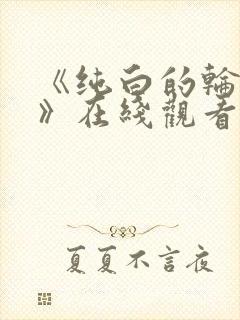 《纯白的輪
》在綫觀看
夏夏不言夜